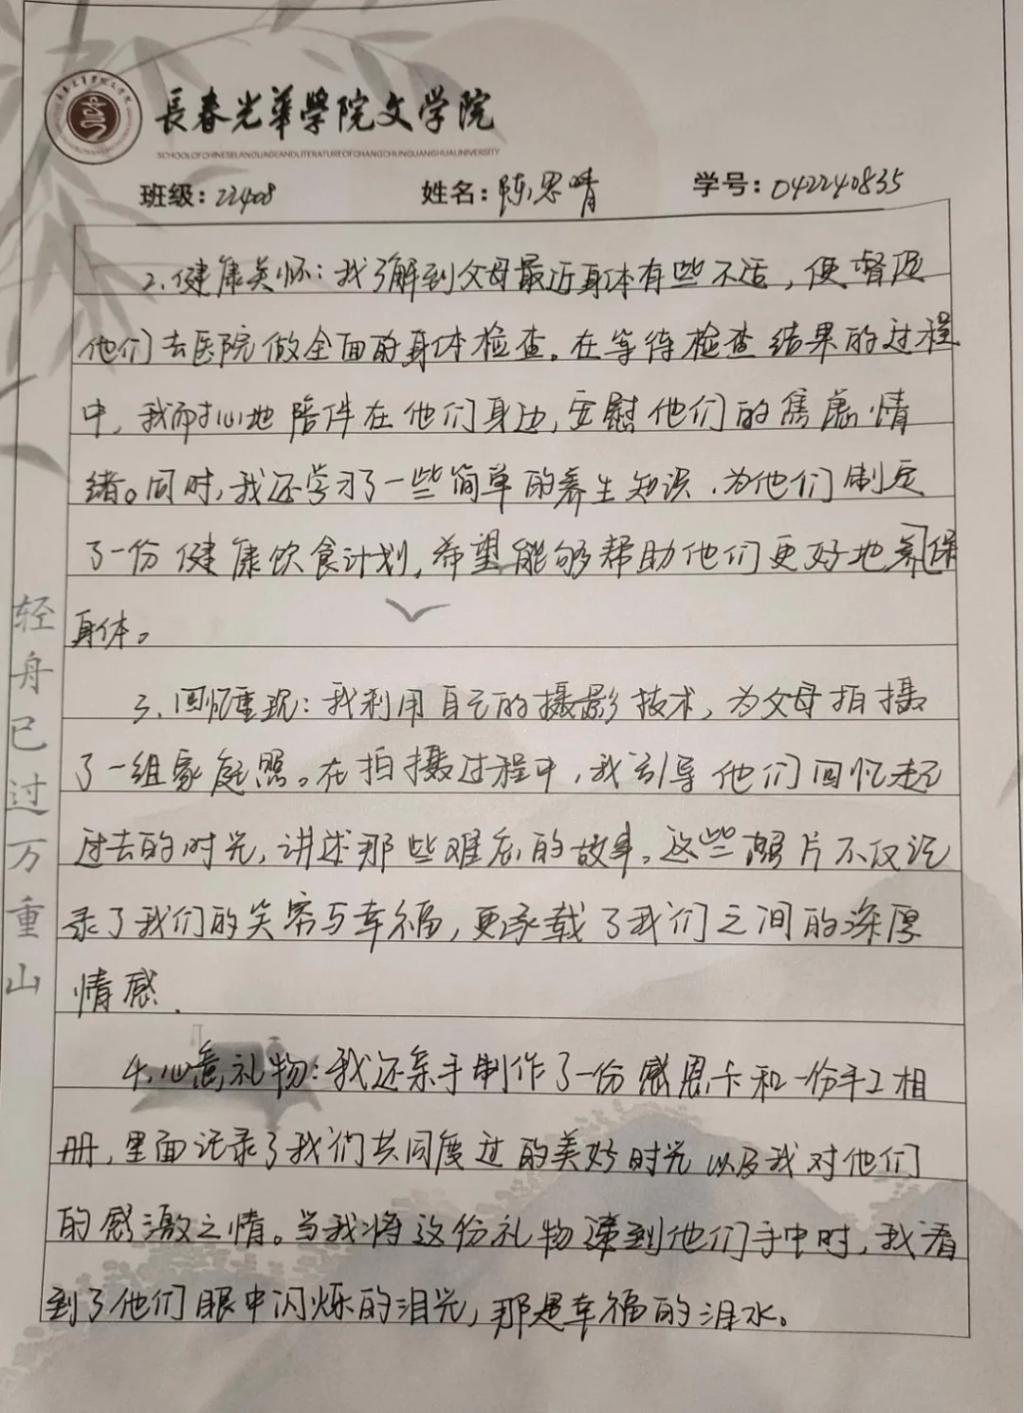 長春光華學院文学院
SCHOOL OF CHINESE LANGUAGE AND LITERATURE OF CHANGCHUN GUANGHUA UNIVERSITY
班级：22408 姓名：陈思晴 学号：042240835
2.健康关怀：我了解到父母最近身体有些不适，便督促
他们去医院做全面的身体检查。在等待检查结果的过程
中，我耐心地陪伴在他们身边，安慰他们的焦虑情
绪。同时，我还学习了一些简单的养生知识，为他们制定
了一份健康饮食计划，希望能够帮助他们更好地保
身体。
3.回忆重现：我利用自己的摄影技术，为父母拍摄
了一组家庭照。在拍摄过程中，我引导他们回忆起
过去的时光，讲述那些难忘的故事。这些照片不仅记
录了我们的笑容与幸福，更承载了我们之间的深厚
情感．
4.心意礼物：我还亲手制作了一份感恩卡和一份手工相
册，里面记录了我们共同度过的美好时光以及我对他们
的感激之情。当我将这份礼物递到他们手中时，我看
到了他们眼中闪烁的泪光，那是幸福的泪水。
轻舟已过万重山